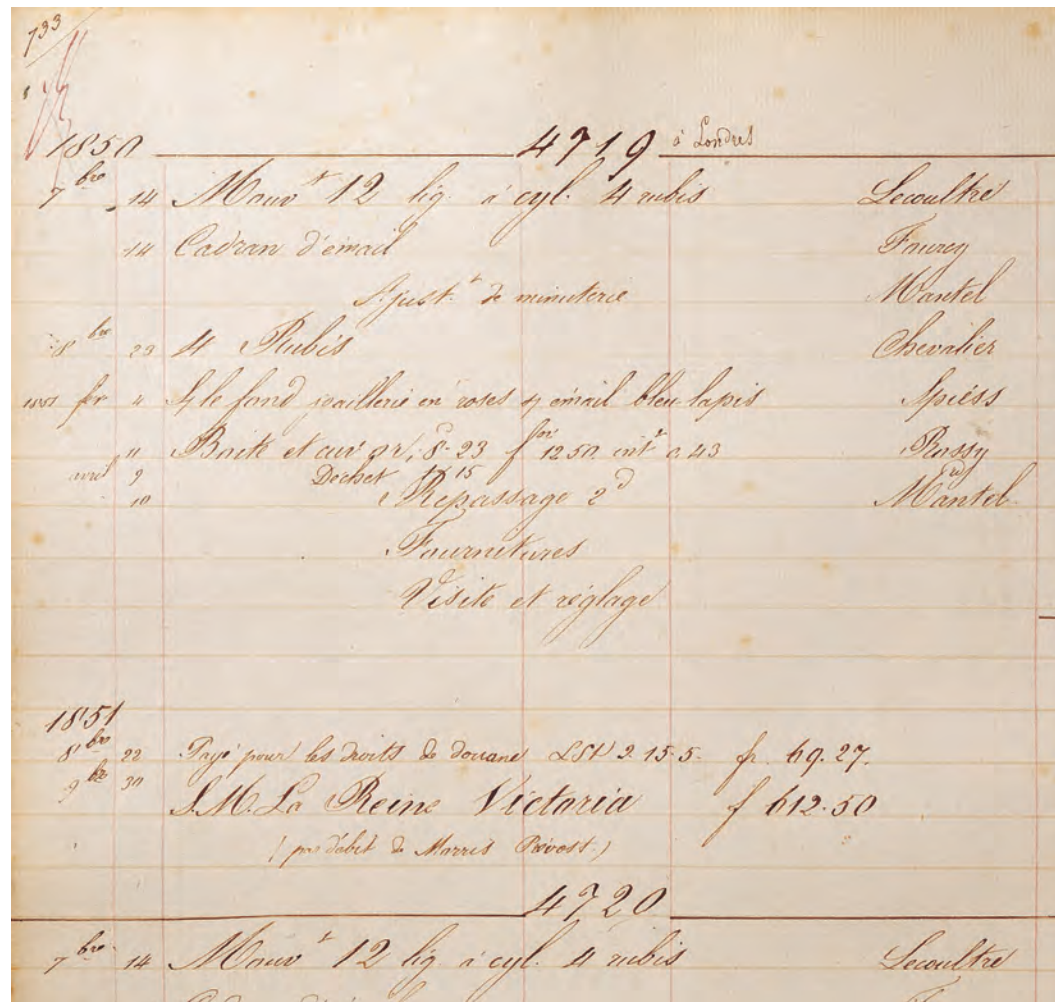 733
1850 4719 à Londres
7bre 14 Mouvt 12 lig. à cyl. 4 rubis Lecoultre
14 Cadran d'émail Fourey
Ajust.t de minuterie Mantel
8bre 29 4 Rubis Chevalier
1851 fer 4 le fond joaillerie en roses émail bleu lapis Spiess
11 Boite et cuv or, 8.23 1250 intr 0.43 Rossy
avril 9 Dechet 15
10 Repassage 2d Mantel
Fournitures
Visite et réglage
1851
8bre 22 Payé pour les droits de douane LSt 2.15.5. fr. 69.27.
9bre 30 S.M. La Reine Victoria f 612.50
(par débit de Morris Prévost.)
4720
7bre 14 Mouvt 12 lig. à cyl. 4 rubis Lecoultre